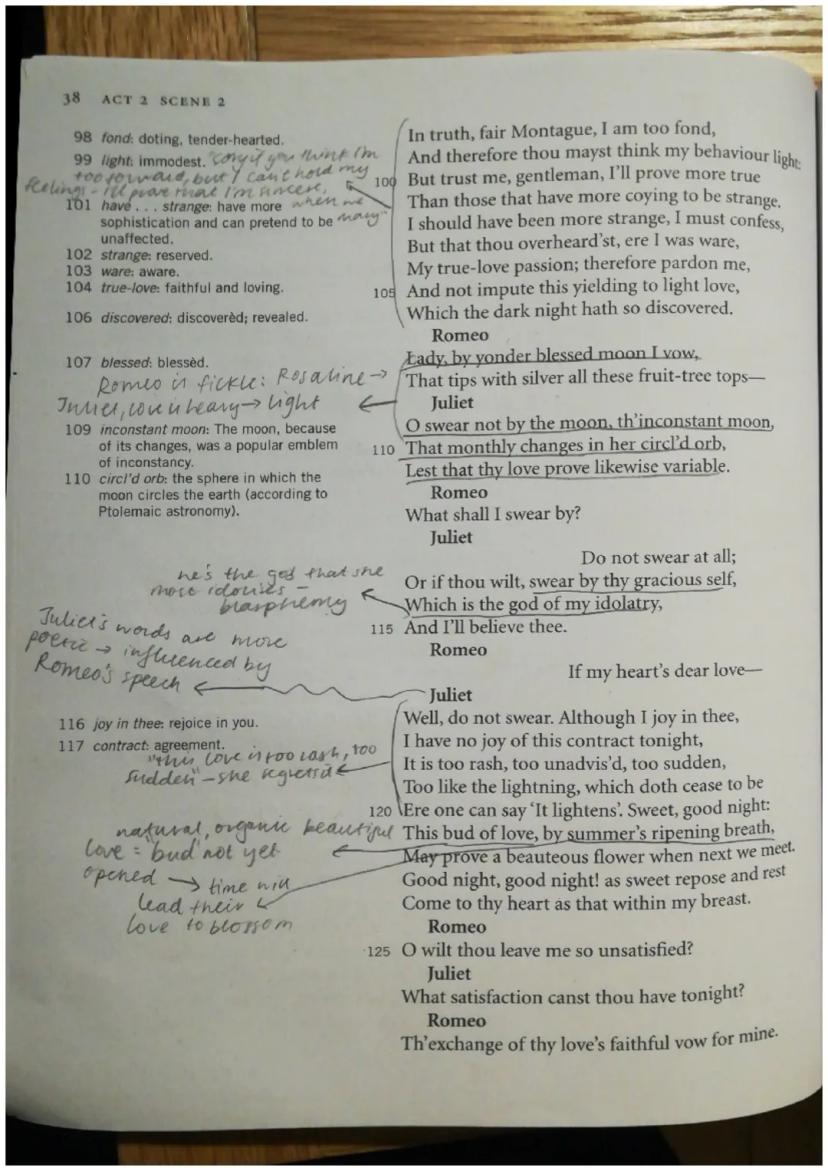 38 ACT 2 SCENE 2
98 fond: doting, tender-hearted.
99 light: immodest. "Sorry if you think I'm
too forward, but I can't hold my
feelings - I'll prove that I'm sincere,
when we
marry"
101 have . . . strange: have more
sophistication and can pretend to be
unaffected.
102 strange: reserved.
103 ware: aware.
104 true-love: faithful and loving.
106 discovered: discoverèd; revealed.
107 blessed: blessèd.
Romeo is fickle: Rosaline →
Juliet, love is heavy → light
109 inconstant moon: The moon, because
of its changes, was a popular emblem
of inconstancy.
110 circl'd orb: the sphere in which the
moon circles the earth (according to
Ptolemaic astronomy).
he's the god that she
most idolises -
blasphemy
Juliet's words are more
poetic → influenced by
Romeo's speech
116 joy in thee: rejoice in you.
117 contract: agreement.
"this love is too rash, too
sudden" - she regrets it
natural, organic beautiful
love = 'bud' not yet
opened → time will
lead their
love to blossom
In truth, fair Montague, I am too fond,
And therefore thou mayst think my behaviour light:
100 But trust me, gentleman, I'll prove more true
Than those that have more coying to be strange.
I should have been more strange, I must confess,
But that thou overheard'st, ere I was ware,
My true-love passion; therefore pardon me,
105 And not impute this yielding to light love,
Which the dark night hath so discovered.
Romeo
Lady, by yonder blessed moon I vow,
That tips with silver all these fruit-tree tops—
Juliet
O swear not by the moon, th'inconstant moon,
110 That monthly changes in her circl'd orb,
Lest that thy love prove likewise variable.
Romeo
What shall I swear by?
Juliet
Do not swear at all;
Or if thou wilt, swear by thy gracious self,
Which is the god of my idolatry,
115 And I'll believe thee.
Romeo
If my heart's dear love—
Juliet
Well, do not swear. Although I joy in thee,
I have no joy of this contract tonight,
It is too rash, too unadvis'd, too sudden,
Too like the lightning, which doth cease to be
120 Ere one can say 'It lightens'. Sweet, good night:
This bud of love, by summer's ripening breath,
May prove a beauteous flower when next we meet.
Good night, good night! as sweet repose and rest
Come to thy heart as that within my breast.
Romeo
125 O wilt thou leave me so unsatisfied?
Juliet
What satisfaction canst thou have tonight?
Romeo
Th'exchange of thy love's faithful vow for mine.